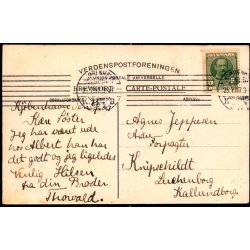 VERDENSPOSTFORENINGEN
UNION POSTALE UNIVERSELLE
BREVKORT. CARTE-POSTALE
København
Kære Søster
Jeg har været ude
hos Albert han har
det godt og jeg ligeledes
Venlig Hilsen
fra din Broder
Thorvald.
Agnes Jeppesen
Adr
Forpagter
Knipschildt
Lerchenborg
Kallundborg